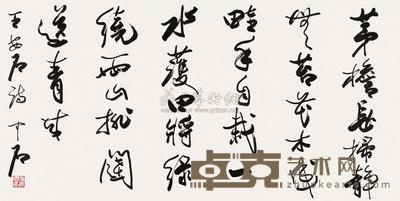 茅檐長掃靜
無苔花木成
畦手自栽一
水護田將綠
繞兩山排闥
送青来
王安石詩 中石
卓克艺术网